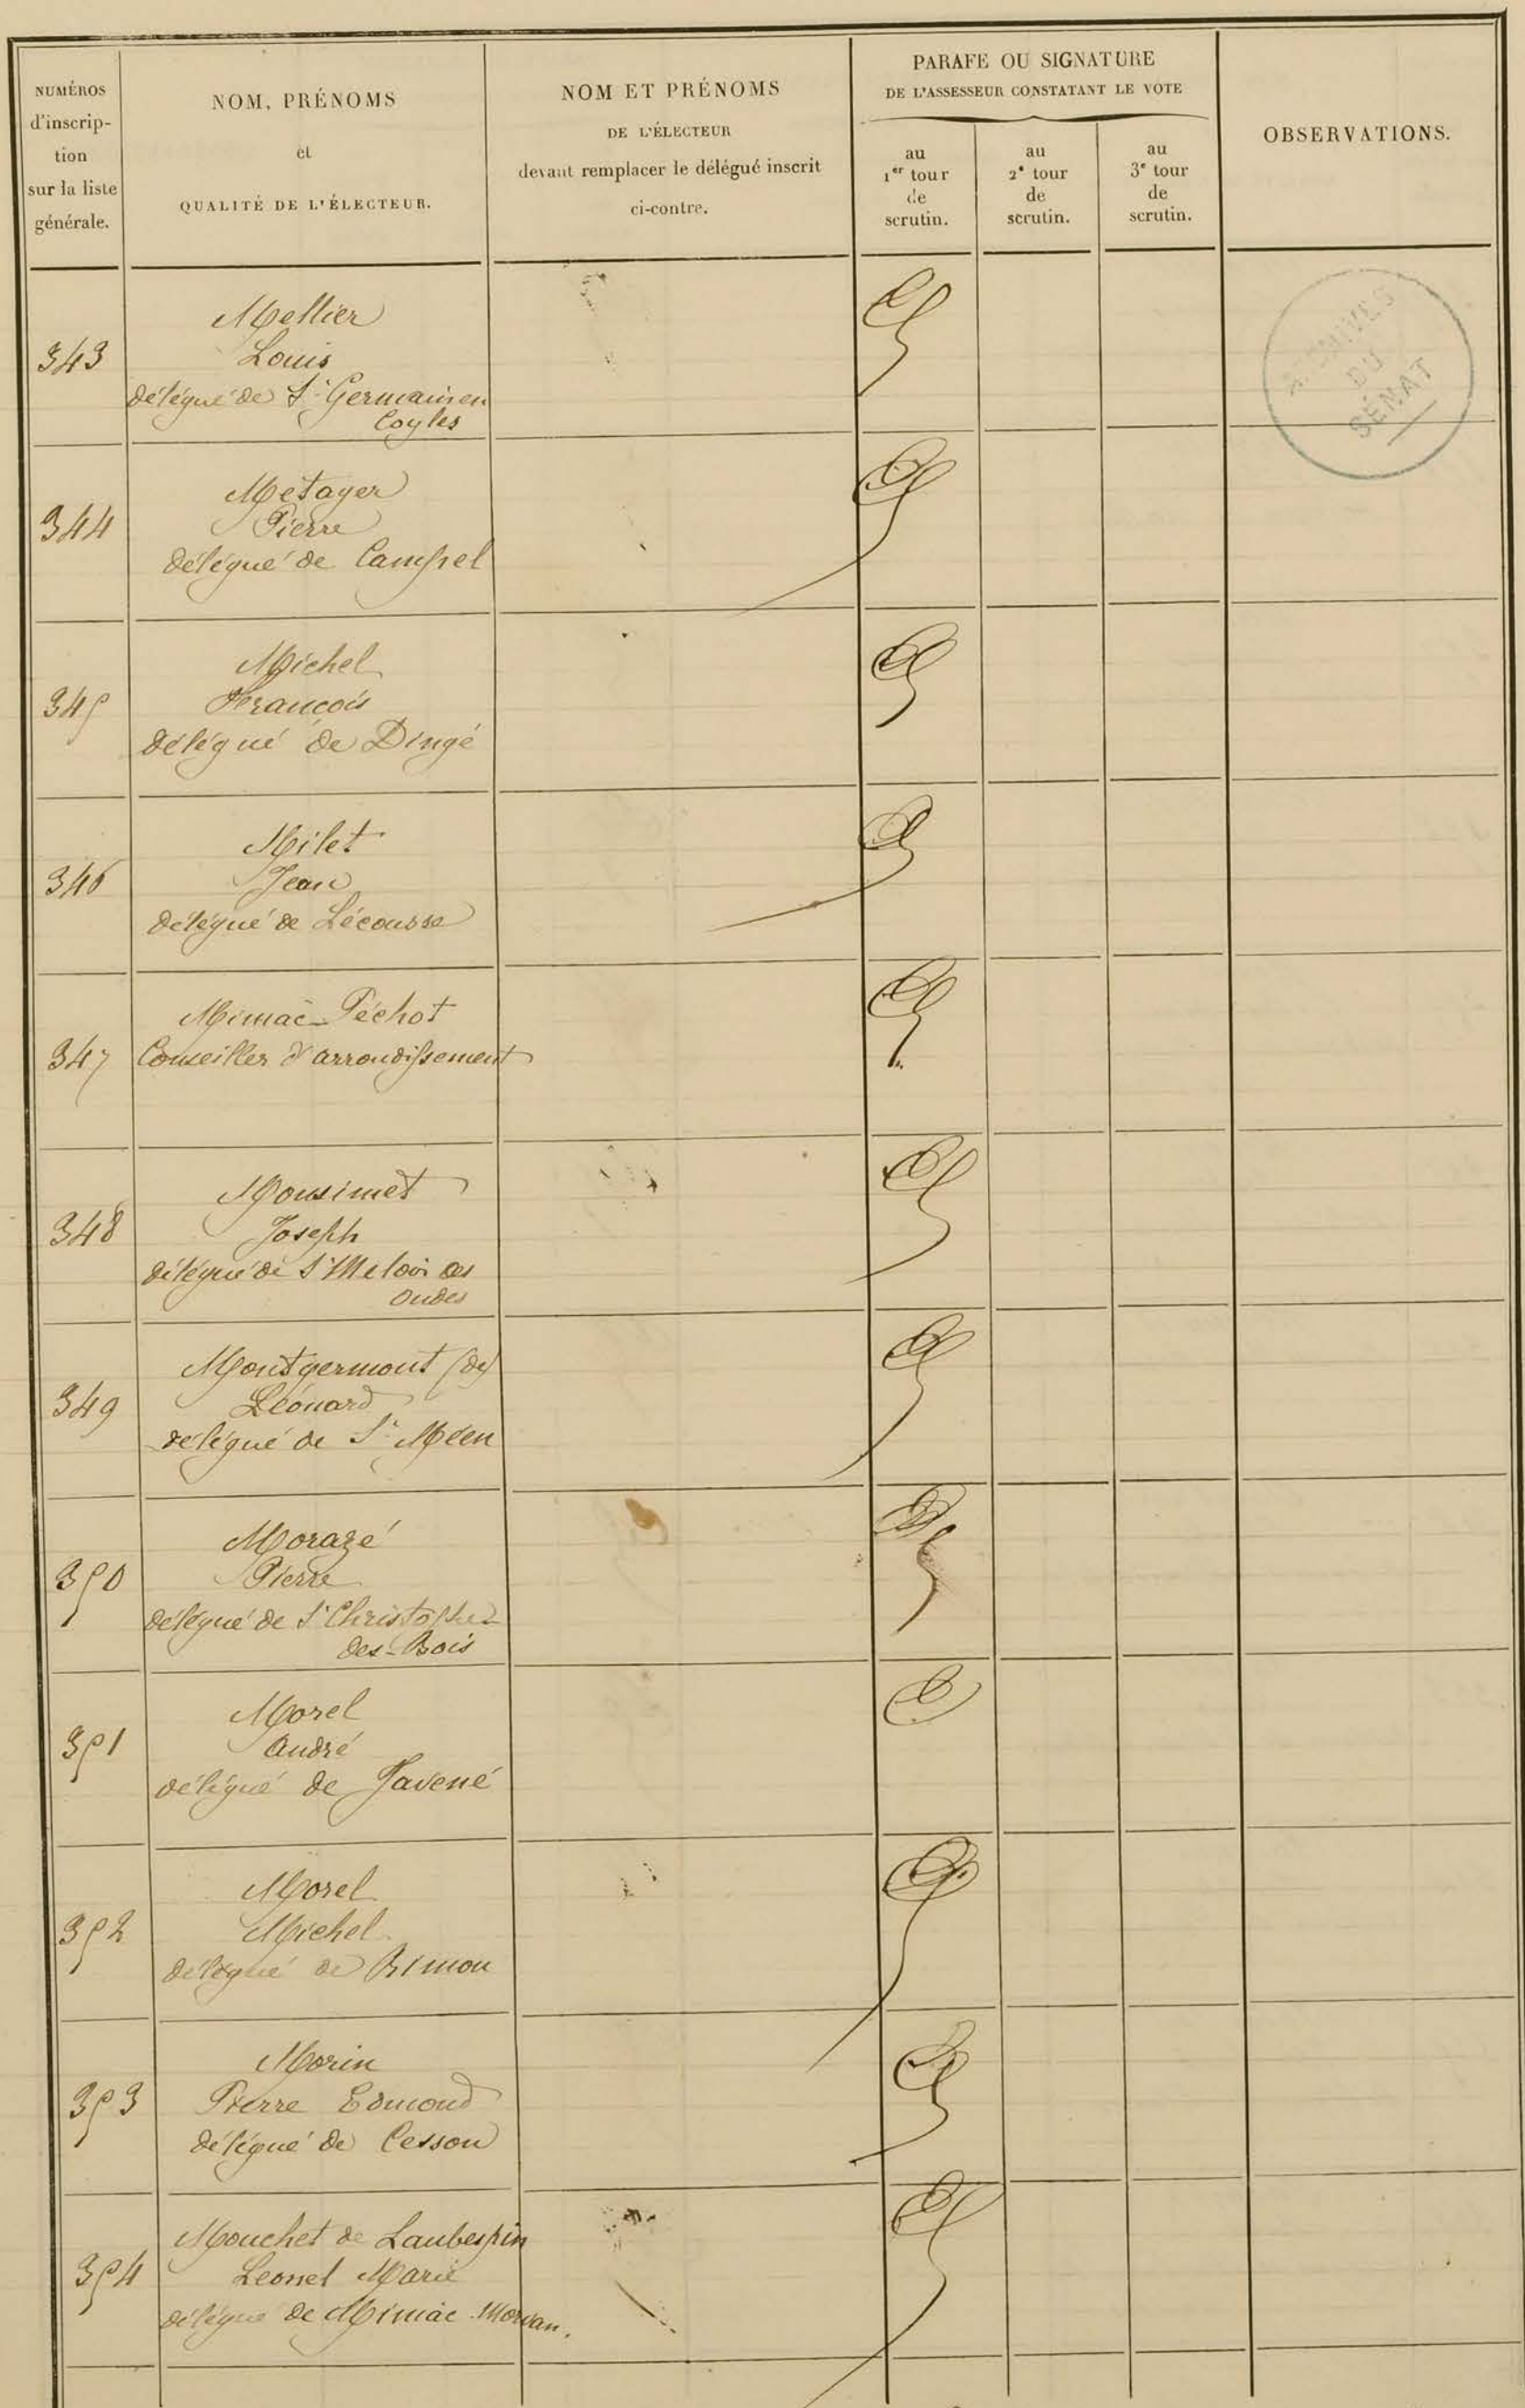 NUMÉROS
d'inscrip-
tion
sur la liste
générale.
NOM, PRÉNOMS
et
QUALITÉ DE L'ÉLECTEUR.
NOM ET PRÉNOMS
DE L'ÉLECTEUR
devant remplacer le délégué inscrit
ci-contre.
PARAFE OU SIGNATURE
DE L'ASSESSEUR CONSTATANT LE VOTE
au
1er tour
de
scrutin.
au
2e tour
de
scrutin.
au
3e tour
de
scrutin.
OBSERVATIONS.
ARCHIVES
DU
SÉNAT
343
Mellier
Louis
délégué de St Germain en
Cogles
344
Metayer
Pierre
délégué de Campel
345
Michel
François
délégué de Dingé
346
Milet
Jean
délégué de Lécousse
347
Miniac-Péchot
Conseiller d'arrondissement
348
Monsimet
Joseph
délégué de St Meloir des
Ondes
349
Montgermont (de)
Léonard
délégué de St Méen
350
Morazé
Pierre
délégué de St Christophe
des-Bois
351
Morel
André
délégué de Javené
352
Morel
Michel
délégué de Rimou
353
Morin
Pierre Edmond
délégué de Cesson
354
Mouchet de Laubespin
Leonel Marie
délégué de Miniac Morvan.